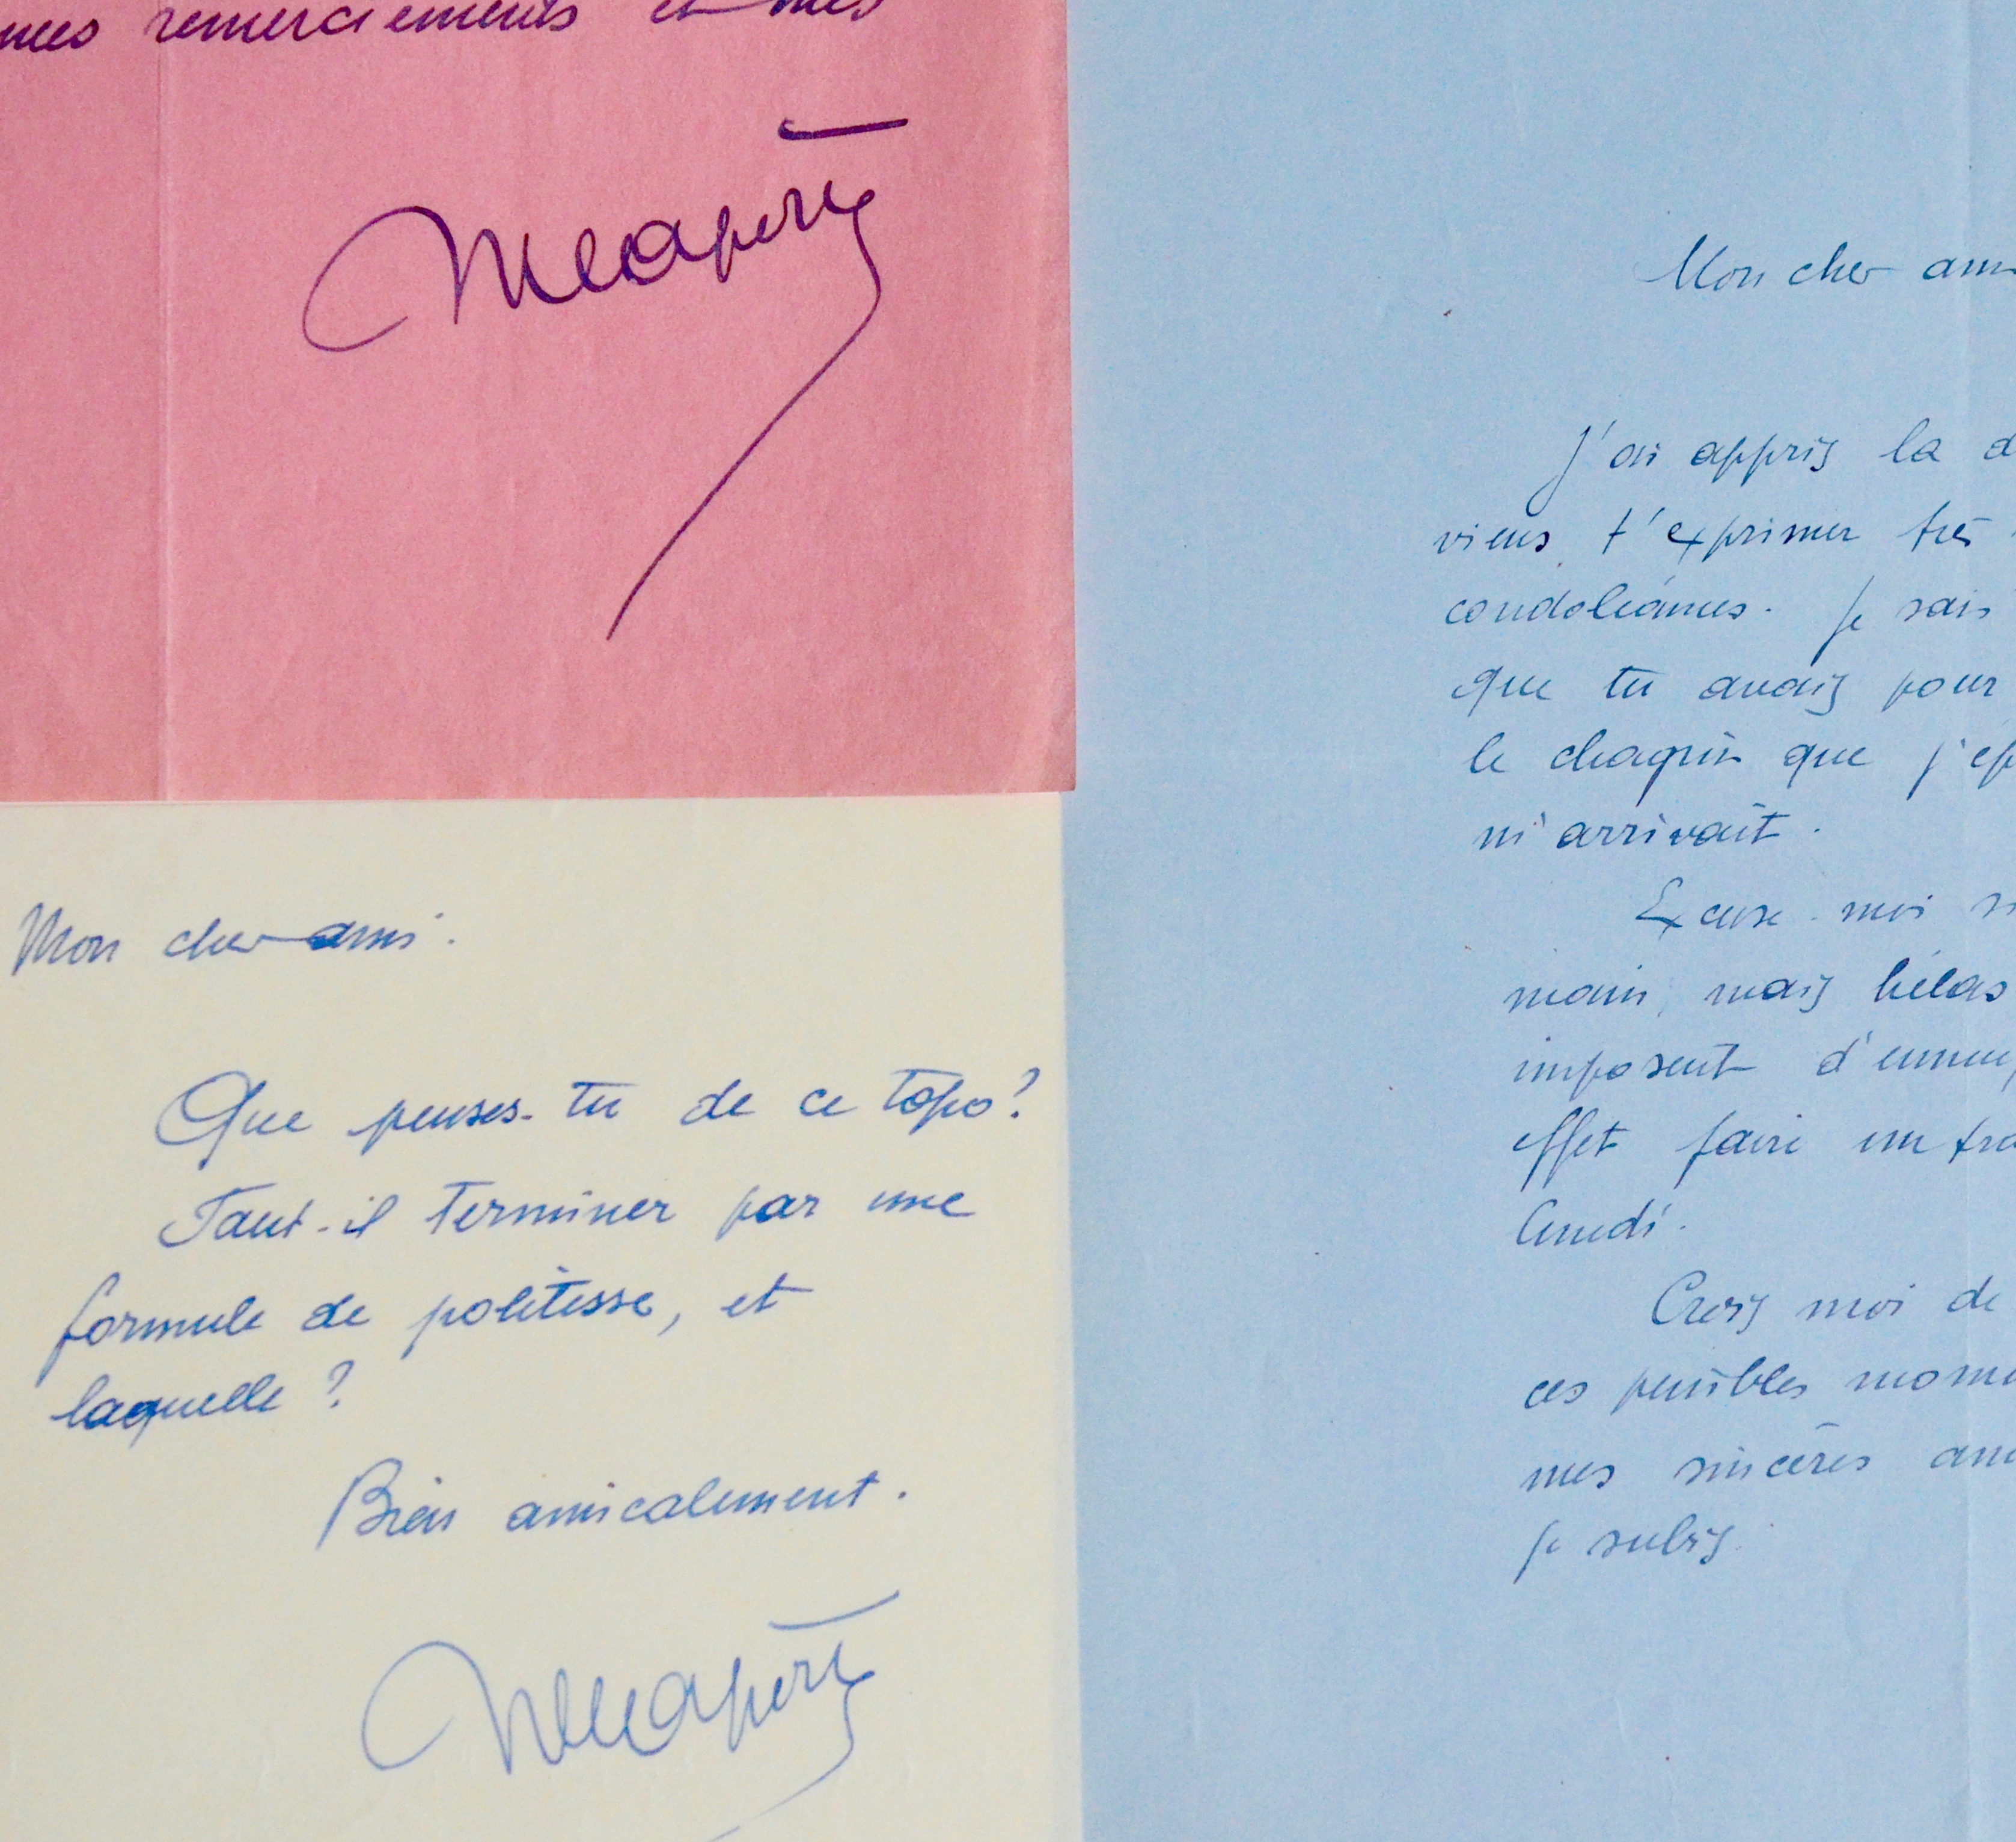 mes remerciements et mes
Mon cher ami.
Que penses-tu de ce topo?
Faut-il terminer par une
formule de politesse, et
laquelle ?
Bien amicalement.
Mon cher ami
J'ai appris la d
viens t'exprimer très
condoléances. Je sais
que tu avais pour
le chagrin que j'ép
m'arrivait.
Excuse-moi si
main, mais hélas
imposent d'ennuy
effet faire un tra
lundi.
Crois moi de
ces pénibles mome
mes sincères ami
je subis.